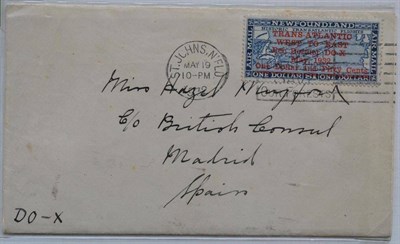 ST. JOHN'S N'FLD
MAY 19
10-PM
NEWFOUNDLAND
TRANS-ATLANTIC
WEST TO EAST
Per Dornier DO-X
May, 1932
One Dollar and Fifty Cents
AIR MAIL
ONE DOLLAR $1 ONE DOLLAR
Miss Hazel
c/o British Consul
Madrid
Spain
DO-X